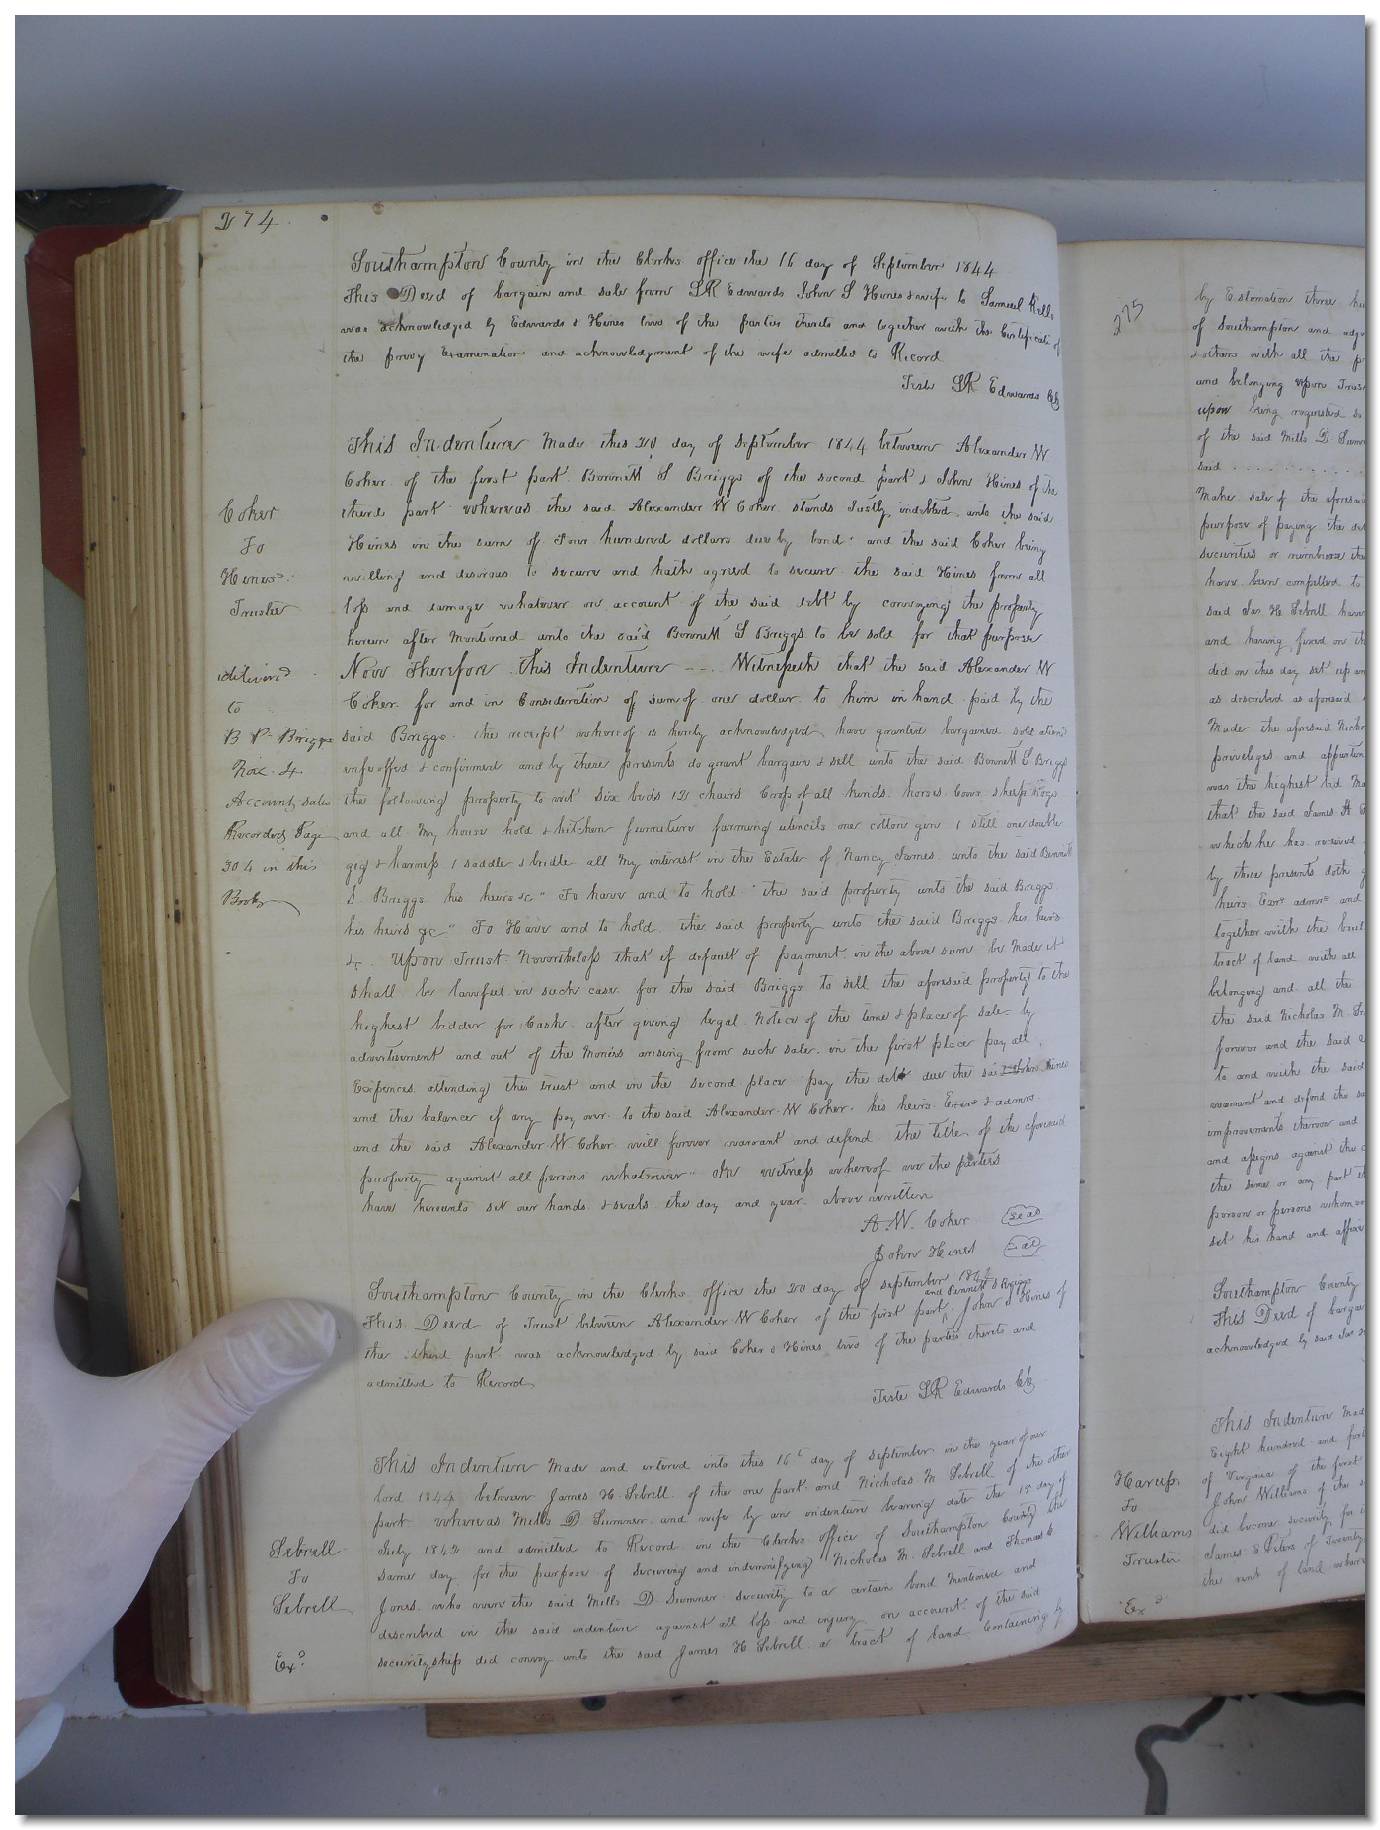 274
Southampton County in the Clerks office the 16 day of September 1844
This Deed of bargain and sale from LR Edwards John S Hines & wife to Samuel Kello
was acknowledged by Edwards & Hines two of the parties thereto and together with the Certificate of
the privy Examination and acknowledgment of the wife admitted to Record
Teste LR Edwards Clk
This Indenture Made this 20 day of September 1844 between Alexander W
Coker of the first part Bennett L Briggs of the second part & John Hines of the
third part whereas the said Alexander W Coker stands Justly indebted unto the said
Hines in the sum of Four hundred dollars due by bond and the said Coker being
willing and desirous to secure and hath agreed to secure the said Hines from all
loss and damage whatever on account of the said debt by conveying the property
herein after Mentioned unto the said Bennett L Briggs to be sold for that purpose
Now Therefore This Indenture Witnesseth that the said Alexander W
Coker for and in Consideration of sum of one dollar to him in hand paid by the
said Briggs the receipt whereof is hereby acknowledged have granted bargained sold
& confirmed and by these presents do grant bargain & sell unto the said Bennett L Briggs
the following property to wit Six beds 12 chairs Crop of all kinds horses Cows sheep Hogs
and all My house hold & kitchen furniture farming utencils one cotton gin 1 still one double
gig & harness 1 saddle & bridle all My interest in the Estate of Nancy James unto the said Bennett
L Briggs his heirs &c" To have and to hold the said property unto the said Briggs
his heirs &c" To Have and to hold the said property unto the said Briggs his heirs
&. Upon Trust Nevertheless that if default of payment in the above sum be Made it
shall be lawful in such case for the said Briggs to sell the aforesaid property to the
highest bidder for Cash after giving legal Notice of the time & place of sale by
advertisement and out of the Monies arising from such sale in the first place pay all
Expences attending this trust and in the second place pay the debt due the said John Hines
and the balance if any pay over to the said Alexander W Coker his heirs Exors & admrs
and the said Alexander W Coker will forever warrant and defend the title of the aforesaid
property against all persons whatever" In witness whereof we the parties
have hereunto set our hands & seals the day and year above written
A. W. Coker Seal
John Hines Seal
Southampton County in the Clerks office the 20 day of September 1844
and Bennett L Briggs
This Deed of Trust between Alexander W Coker of the first part John Hines of
the third part was acknowledged by said Coker & Hines two of the parties thereto and
admitted to Record
Teste LR Edwards Clk
This Indenture Made and entered into this 16 day of September in the year of our
lord 1844 between James H Sebrell of the one part and Nicholas M Sebrell of the other
part whereas Mills D Sumner and wife by an indenture bearing date the 15 day of
July 1842 and admitted to Record in the Clerks office of Southampton County the
same day for the purpose of securing and indemnifying Nicholas M. Sebrell and Thomas C
Jones who were the said Mills D Sumner security to a certain bond Mentioned and
described in the said indenture against all loss and injury on account of the said
securityship did convey unto the said James H Sebrell a tract of land Containing by
Coker
To
Hines
Trustee
delivered
to
B P Briggs
Nov. 4
Account sales
Recorded Page
304 in this
Book
Sebrell
To
Sebrell
Exd
275
by Estimation three
of Southampton and
& others with all the
and belonging upon Trust
upon being requested
of the said Mills D Sumner
said
Make sale of the aforesaid
purpose of paying the
securities or
have been compelled to
said Jas H Sebrell
and having fixed on
did on this day set up
as described as aforesaid
Made the aforesaid
priveleges and
was the highest bid
that the said James H
which he has received
by these presents doth
heirs Exrs admrs and
together with the
tract of land with all
belonging and all the
the said Nicholas M.
forever and the said
to and with the said
warrant and defend the
improvements thereon and
and assigns against the
the same or any part
person or persons whom
set his hand and
Southampton County
This Deed of
acknowledged by said Jas
This Indenture
Eight hundred and
of Virginia of the first
John Williams of the
did become security for
James S Peters of Twenty
the rent of land
Harups
To
Williams
Trustee
Exd